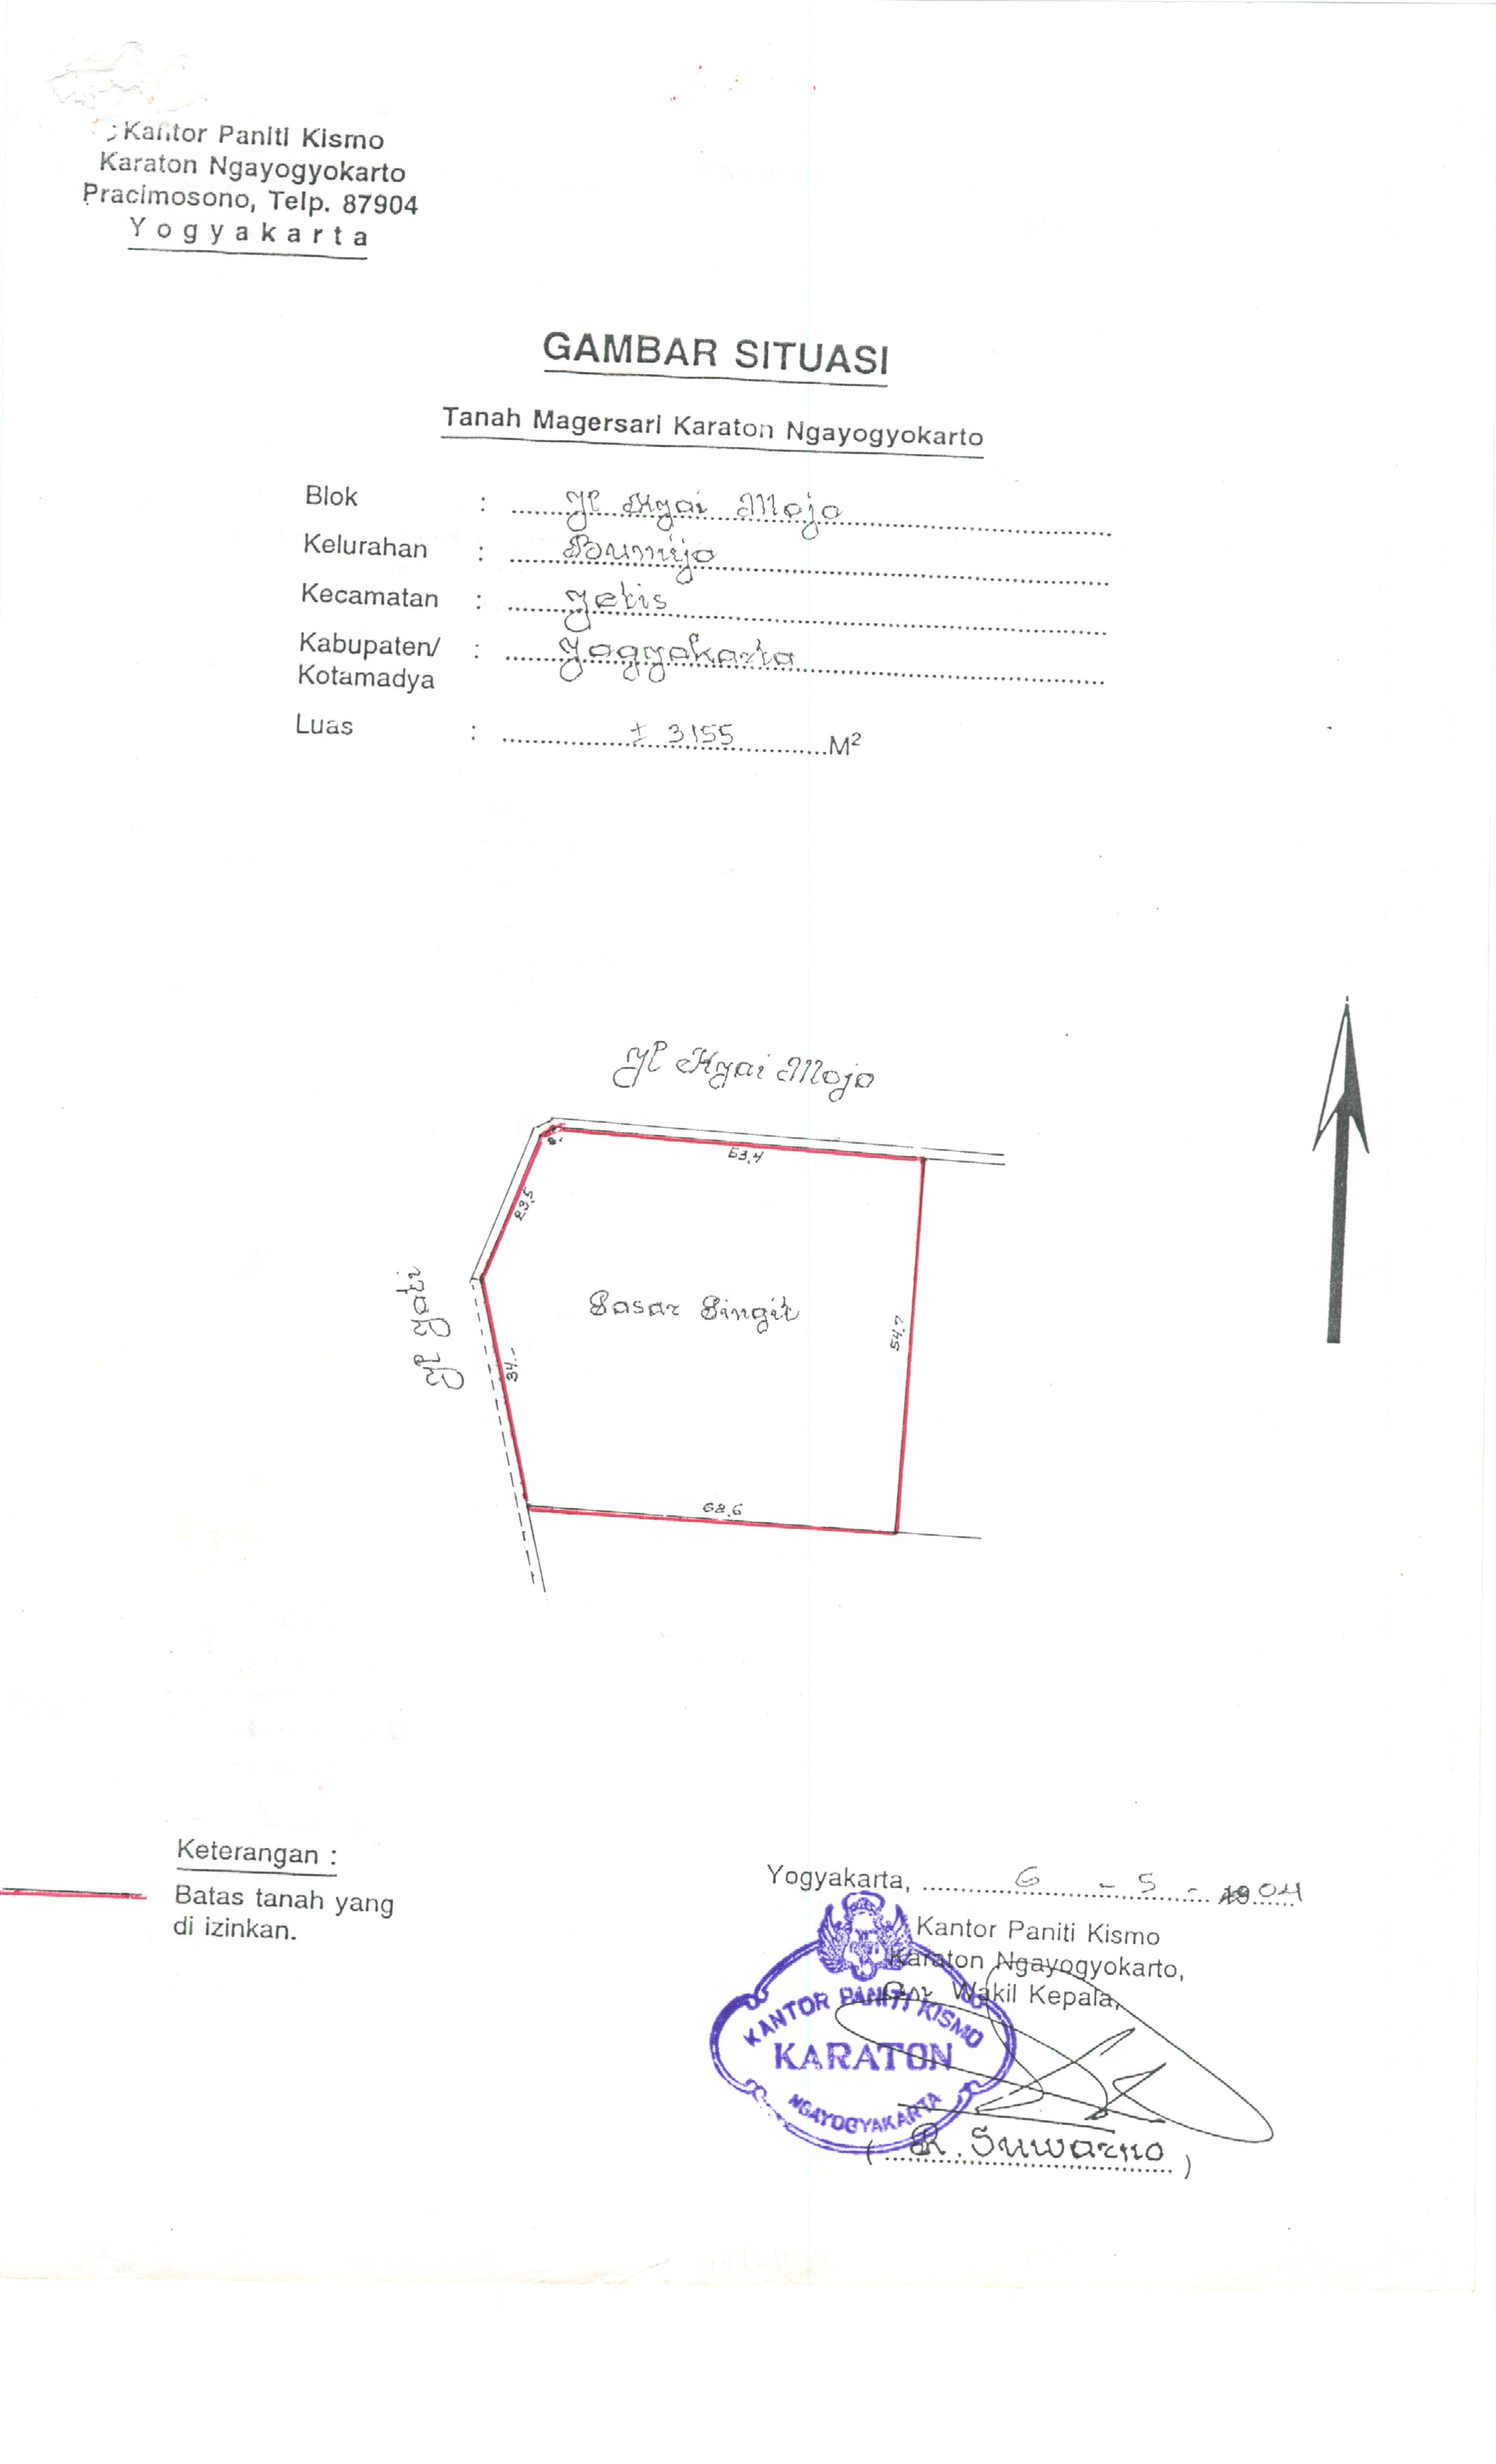 Kantor Paniti Kismo
Karaton Ngayogyokarto
Pracimosono, Telp. 87904
Yogyakarta
GAMBAR SITUASI
Tanah Magersari Karaton Ngayogyokarto
Blok : Jl Kyai Mojo
Kelurahan : Bumijo
Kecamatan : Jetis
Kabupaten/ : Yogyakarta
Kotamadya
Luas : ± 3155 M²
Jl Kyai Mojo
53,4
23,5
Jl Jati
Pasar Pingit
54,7
34.-
68,6
Keterangan :
Batas tanah yang
di izinkan.
Yogyakarta, 6 - 5 - 04
Kantor Paniti Kismo
Karaton Ngayogyokarto,
Wakil Kepala,
KANTOR PANITI KISMO
KARATON
NGAYOGYAKARTA
( R. Suwarno )